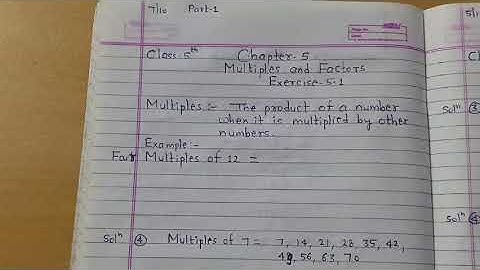 7/10 Part-1
Class-5th Chapter-5
Multiples and Factors
Exercise-5.1
Multiples :- The product of a number
when it is multiplied by other
numbers.
Example:-
Multiples of 12 =
Solⁿ ④ Multiples of 7 = 7, 14, 21, 28, 35, 42,
49, 56, 63, 70
5/1
Solⁿ
Solⁿ